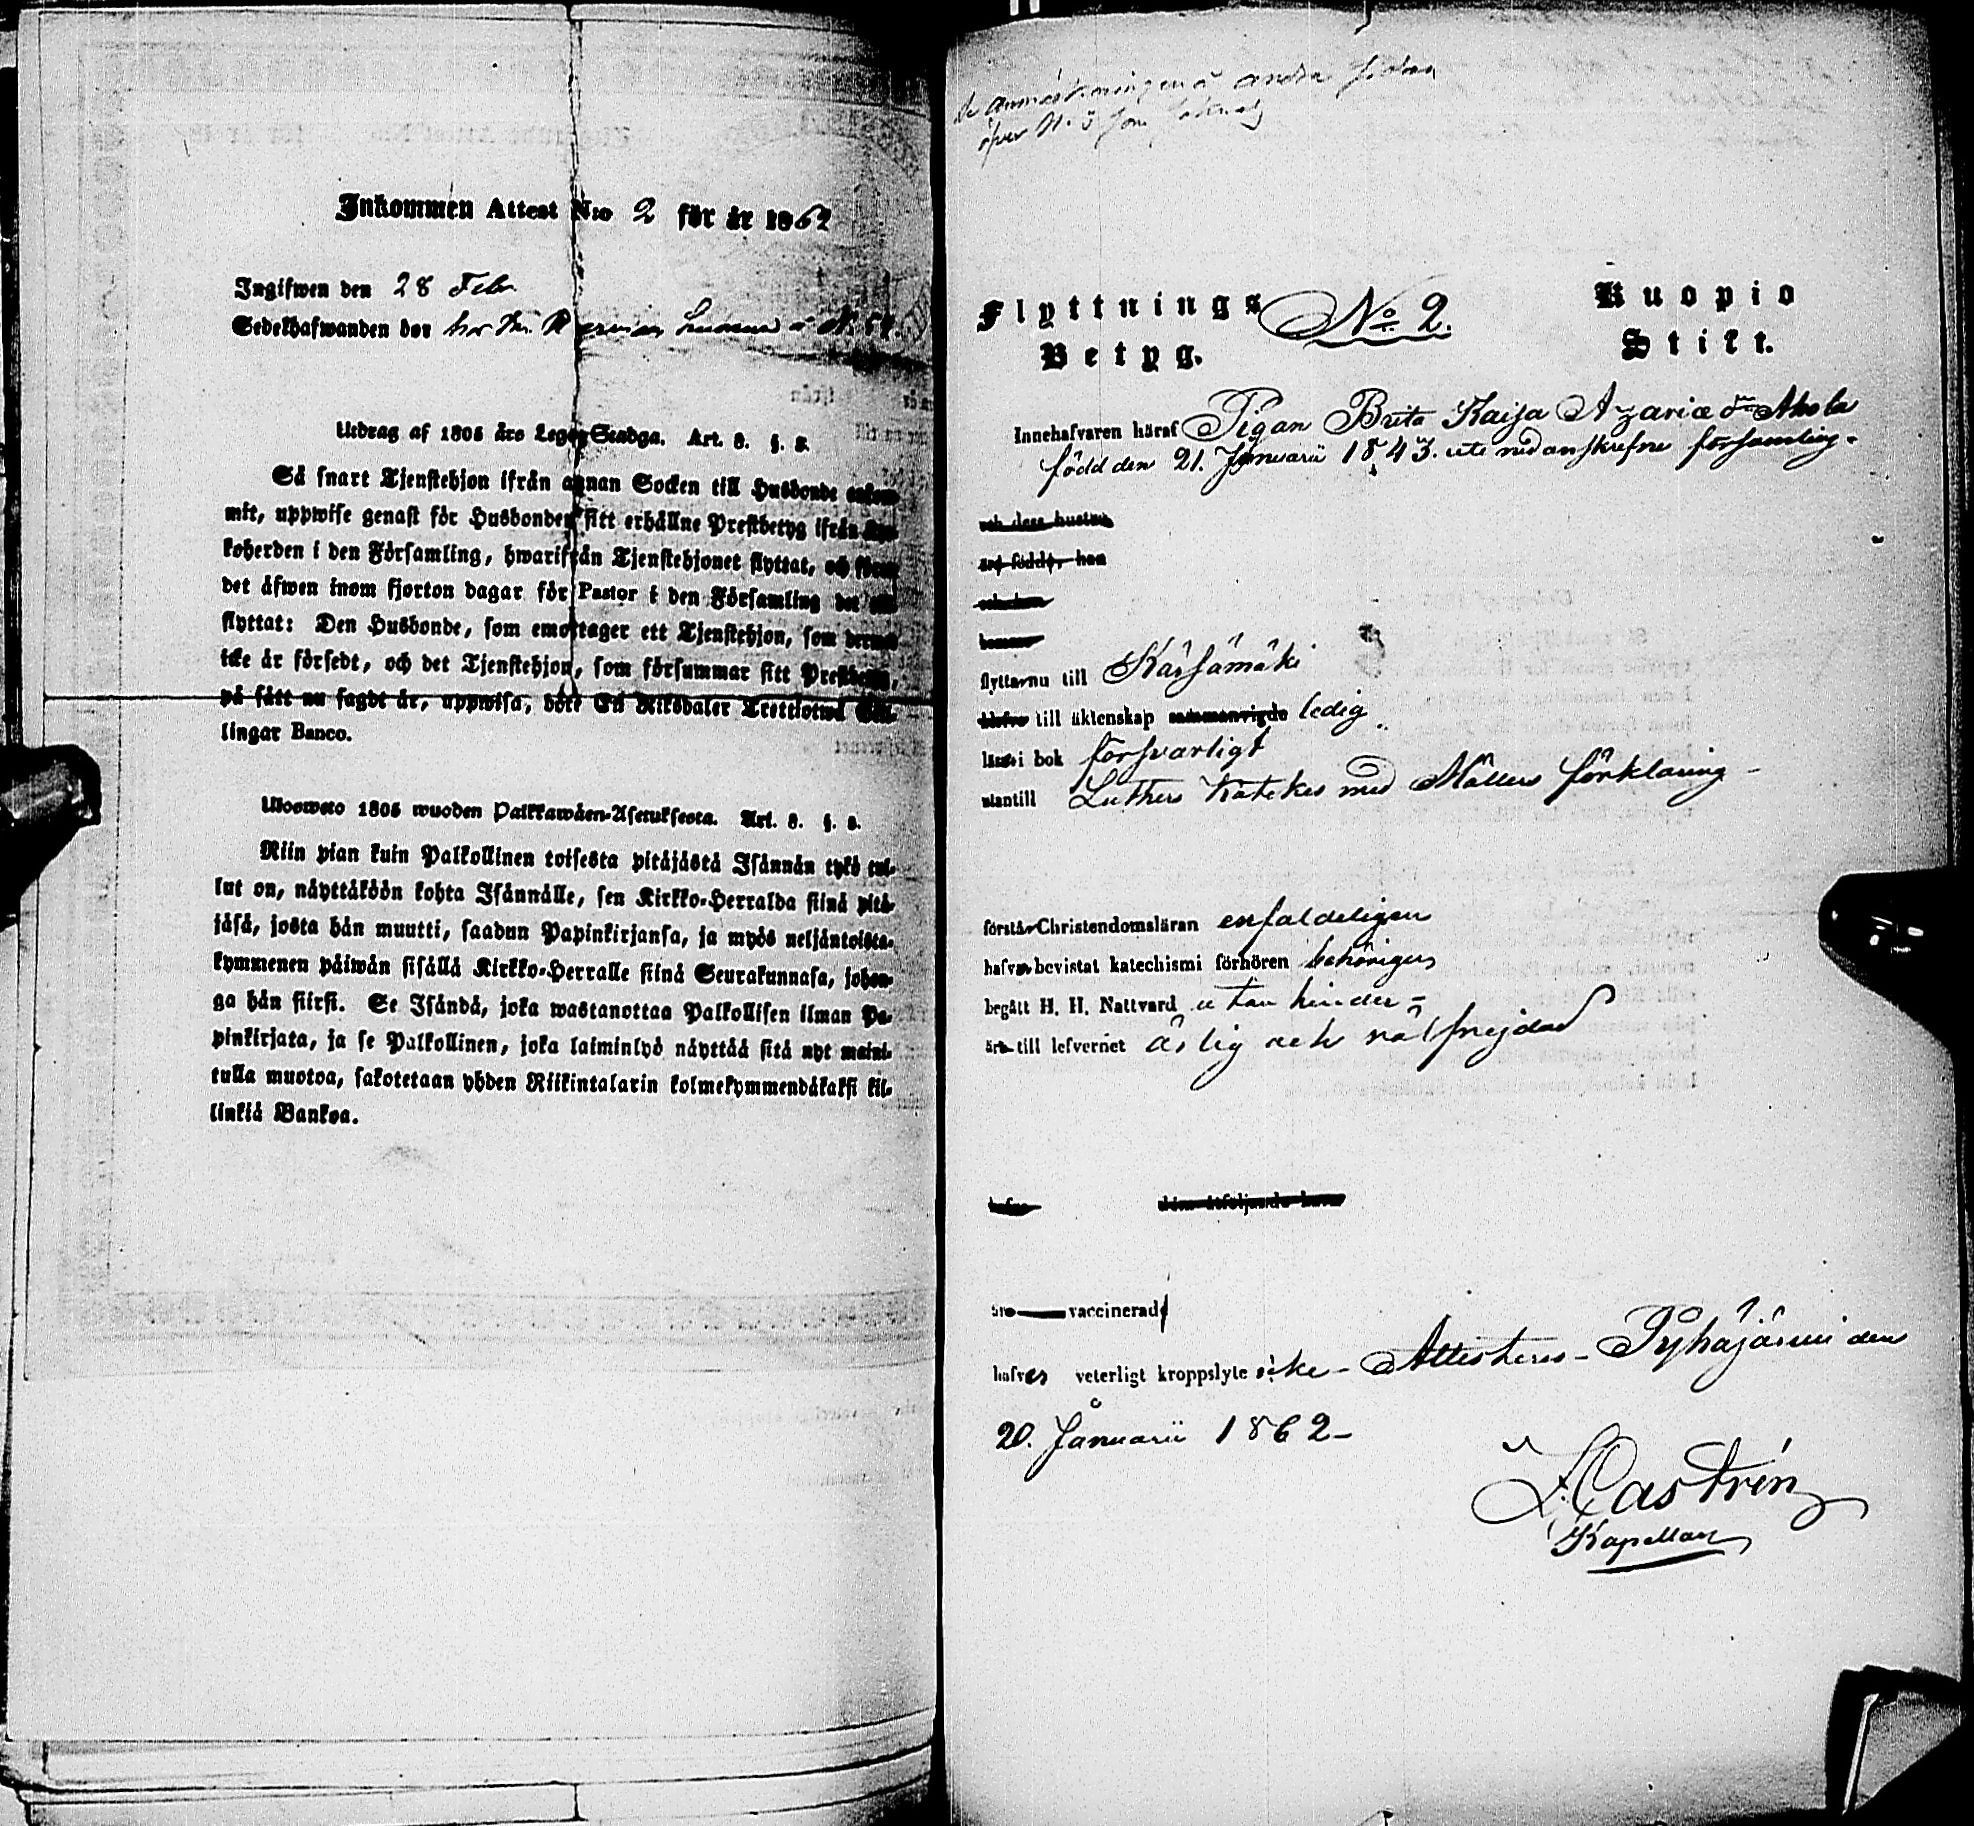 Inkommen Attest N:o 2 för år 1862
Ingifwen den 28 Febr
Sedelhafwanden bor hos
Utdrag af 1805 års Lego-Stadga. Art. 8. §. 8.
Så snart Tjenstehjon ifrån annan Socken till Husbonde ankom-
mit, uppwise genast för Husbonden sitt erhållne Prestbetyg ifrån Kyr-
koherden i den Församling, hwarifrån Tjenstehjonet flyttat, och
det åfwen inom fjorton dagar för Pastor i den Församling det
flyttat: Den Husbonde, som emottager ett Tjenstehjon, som dermed
icke är försedt, och det Tjenstehjon, som försummar sitt Prestbetyg,
på sått nu sagdt är, uppwisa, böte En Riksdaler Trettiotwå Skil-
lingar Banco.
Ulosweto 1805 wuoden Palkkawäen-Asetuksesta. Art. 8. §. 8.
Niin pian kuin Palkollinen toisesta pitäjästä Isännän tykö tul-
lut on, näyttäköön kohta Isännälle, sen Kirkko-Herralda siinä pitä-
jäsä, josta hän muutti, saadun Papinkirjansa, ja myös neljäntoista-
kymmenen päiwän sisällä Kirkko-Herralle siinä Seurakunnasa, johon-
ga hän siirsi. Se Isändä, joka wastanottaa Palkollisen ilman Pa-
pinkirjata, ja se Palkollinen, joka laiminlyö näyttää sitä nyt maini-
tulla muotoa, sakotetaan yhden Riikintalarin kolmekymmendäkaksi kil-
linkiä Bankoa.
anmärkningen å andra sidan
öfver N. 3 som
Flyttnings No 2. Kuopio
Betyg. Stift.
Innehafvaren häraf Pigan Brita Kaisa Azariæ dr Ahola
född den 21. Januarii 1843. uti nedanskrefne församling -
och dess hustru
äro födde, han
och hon
flyttar nu till Kärsämäki
till äktenskap sammanvigde ledig
läser i bok försvarligt
utantill Luthers Katekes med Möllers förklaring -
förstår Christendomsläran enfaldeligen
hafver bevistat katechismi förhören behörigen
begått H. H. Nattvard utan hinder -
är till lefvernet ärlig och välfrejdad
hafva dem åtföljande barn
äro vaccinerad
hafver veterligt kroppslyte icke - Attesteras - Pyhäjärvi den
20. Januarii 1862 -
Castrén
Kapellan